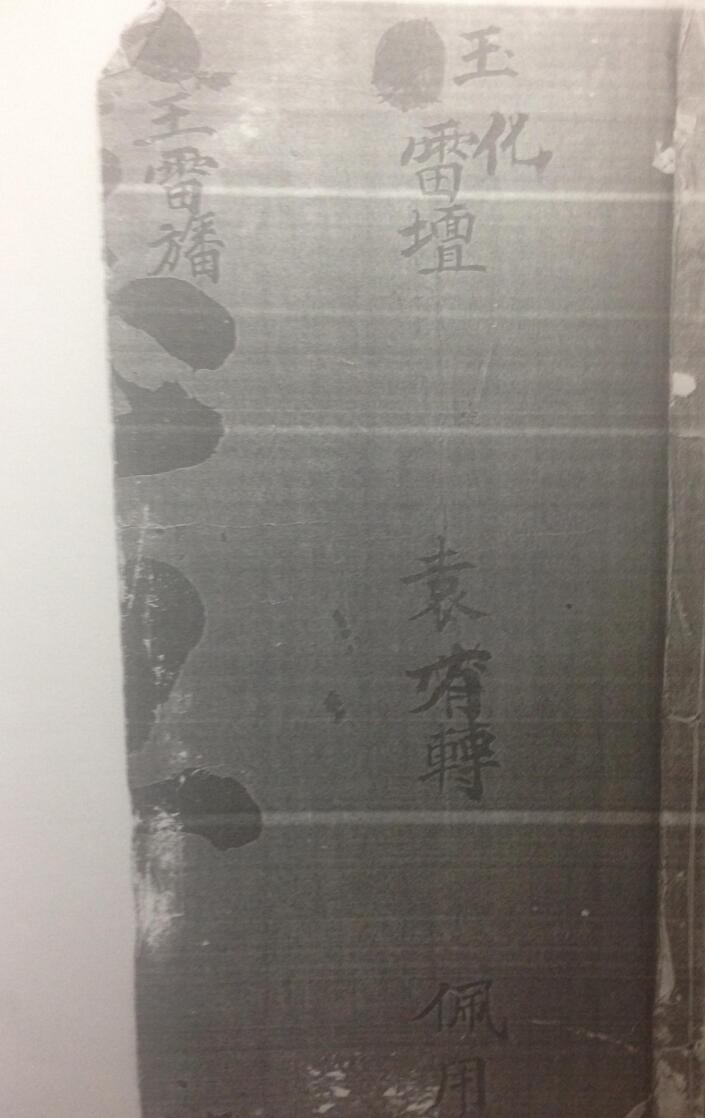 玉化
雷壇 袁轉 佩用
王雷旛